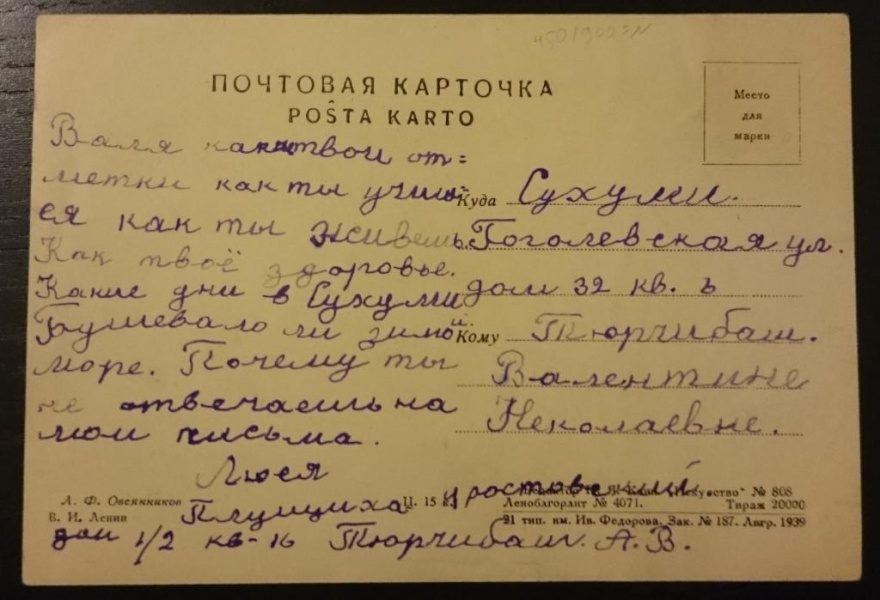 ПОЧТОВАЯ КАРТОЧКА
POŜTA KARTO
Место
для
марки
Валя как твои от=
метки как ты учиш=
ся как ты живешь.
Как твоё здоровье.
Какие дни в Сухуми
Бушевало ли зимой
море. Почему ты
не отвечаешь на
мои письма.
Люся
Плущиха 1 ростовский
дом 1/2 кв-16 Тюрчибаш. А. В.
Куда Сухуми.
Гоголевская ул.
дом 32 кв. ъ
Кому Тюрчибаш.
Валентине
Неколаевне.
А. Ф. Овсянников
В. И. Ленин
Ц. 15 к.
"Искусство" № 808
Леноблгорлит № 4071. Тираж 20000
21 тип. им. Ив. Федорова. Зак. № 187. Лнгр. 1939